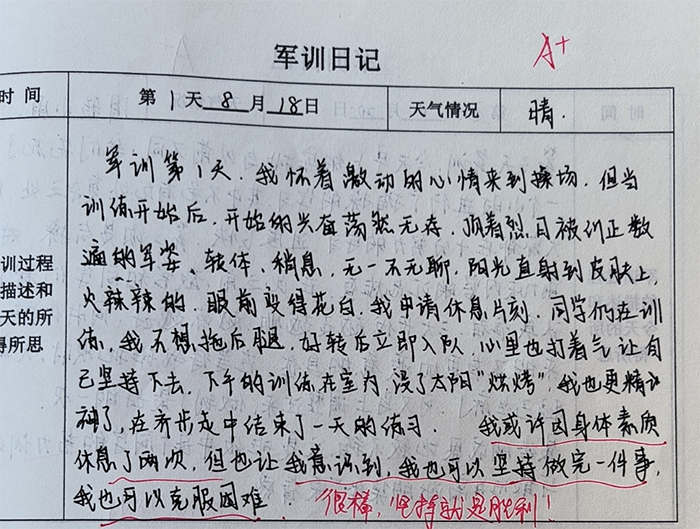 军训日记
A+
时 间
第 1 天 8 月 18 日
天气情况
晴.
军训第1天,我怀着激动的心情来到操场,但当
训练开始后,开始的兴奋荡然无存,顶着烈日被训正数
遍的军姿、转体、稍息,无一不无聊,阳光直射到皮肤上,
火辣辣的,眼前变得花白,我申请休息片刻,同学们在训
练,我不想拖后腿,好转后立即入队,心里也打着气让自
己坚持下去,下午的训练在室内,没了太阳“烘烤”,我也更精
神了,在齐步走中结束了一天的练习. 我或许因身体素质
休息了两次,但也让我意识到,我也可以坚持做完一件事,
我也可以克服困难.
很棒,坚持就是胜利!
训过程
描述和
天的所
得所思